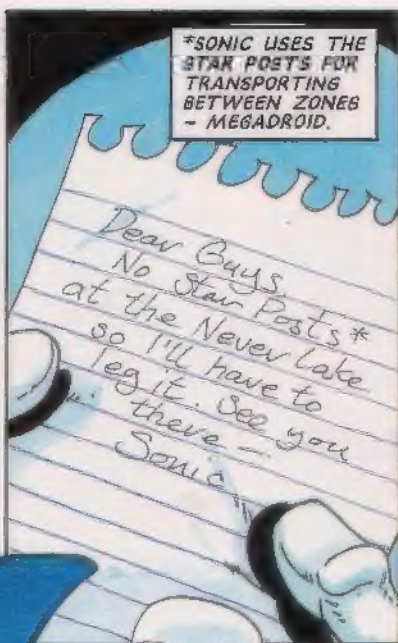 *SONIC USES THE
STAR POSTS FOR
TRANSPORTING
BETWEEN ZONES
– MEGADROID.
Dear Guys
No Star Posts*
at the Never Lake
so I'll have to
leg it. See you
there –
Sonic